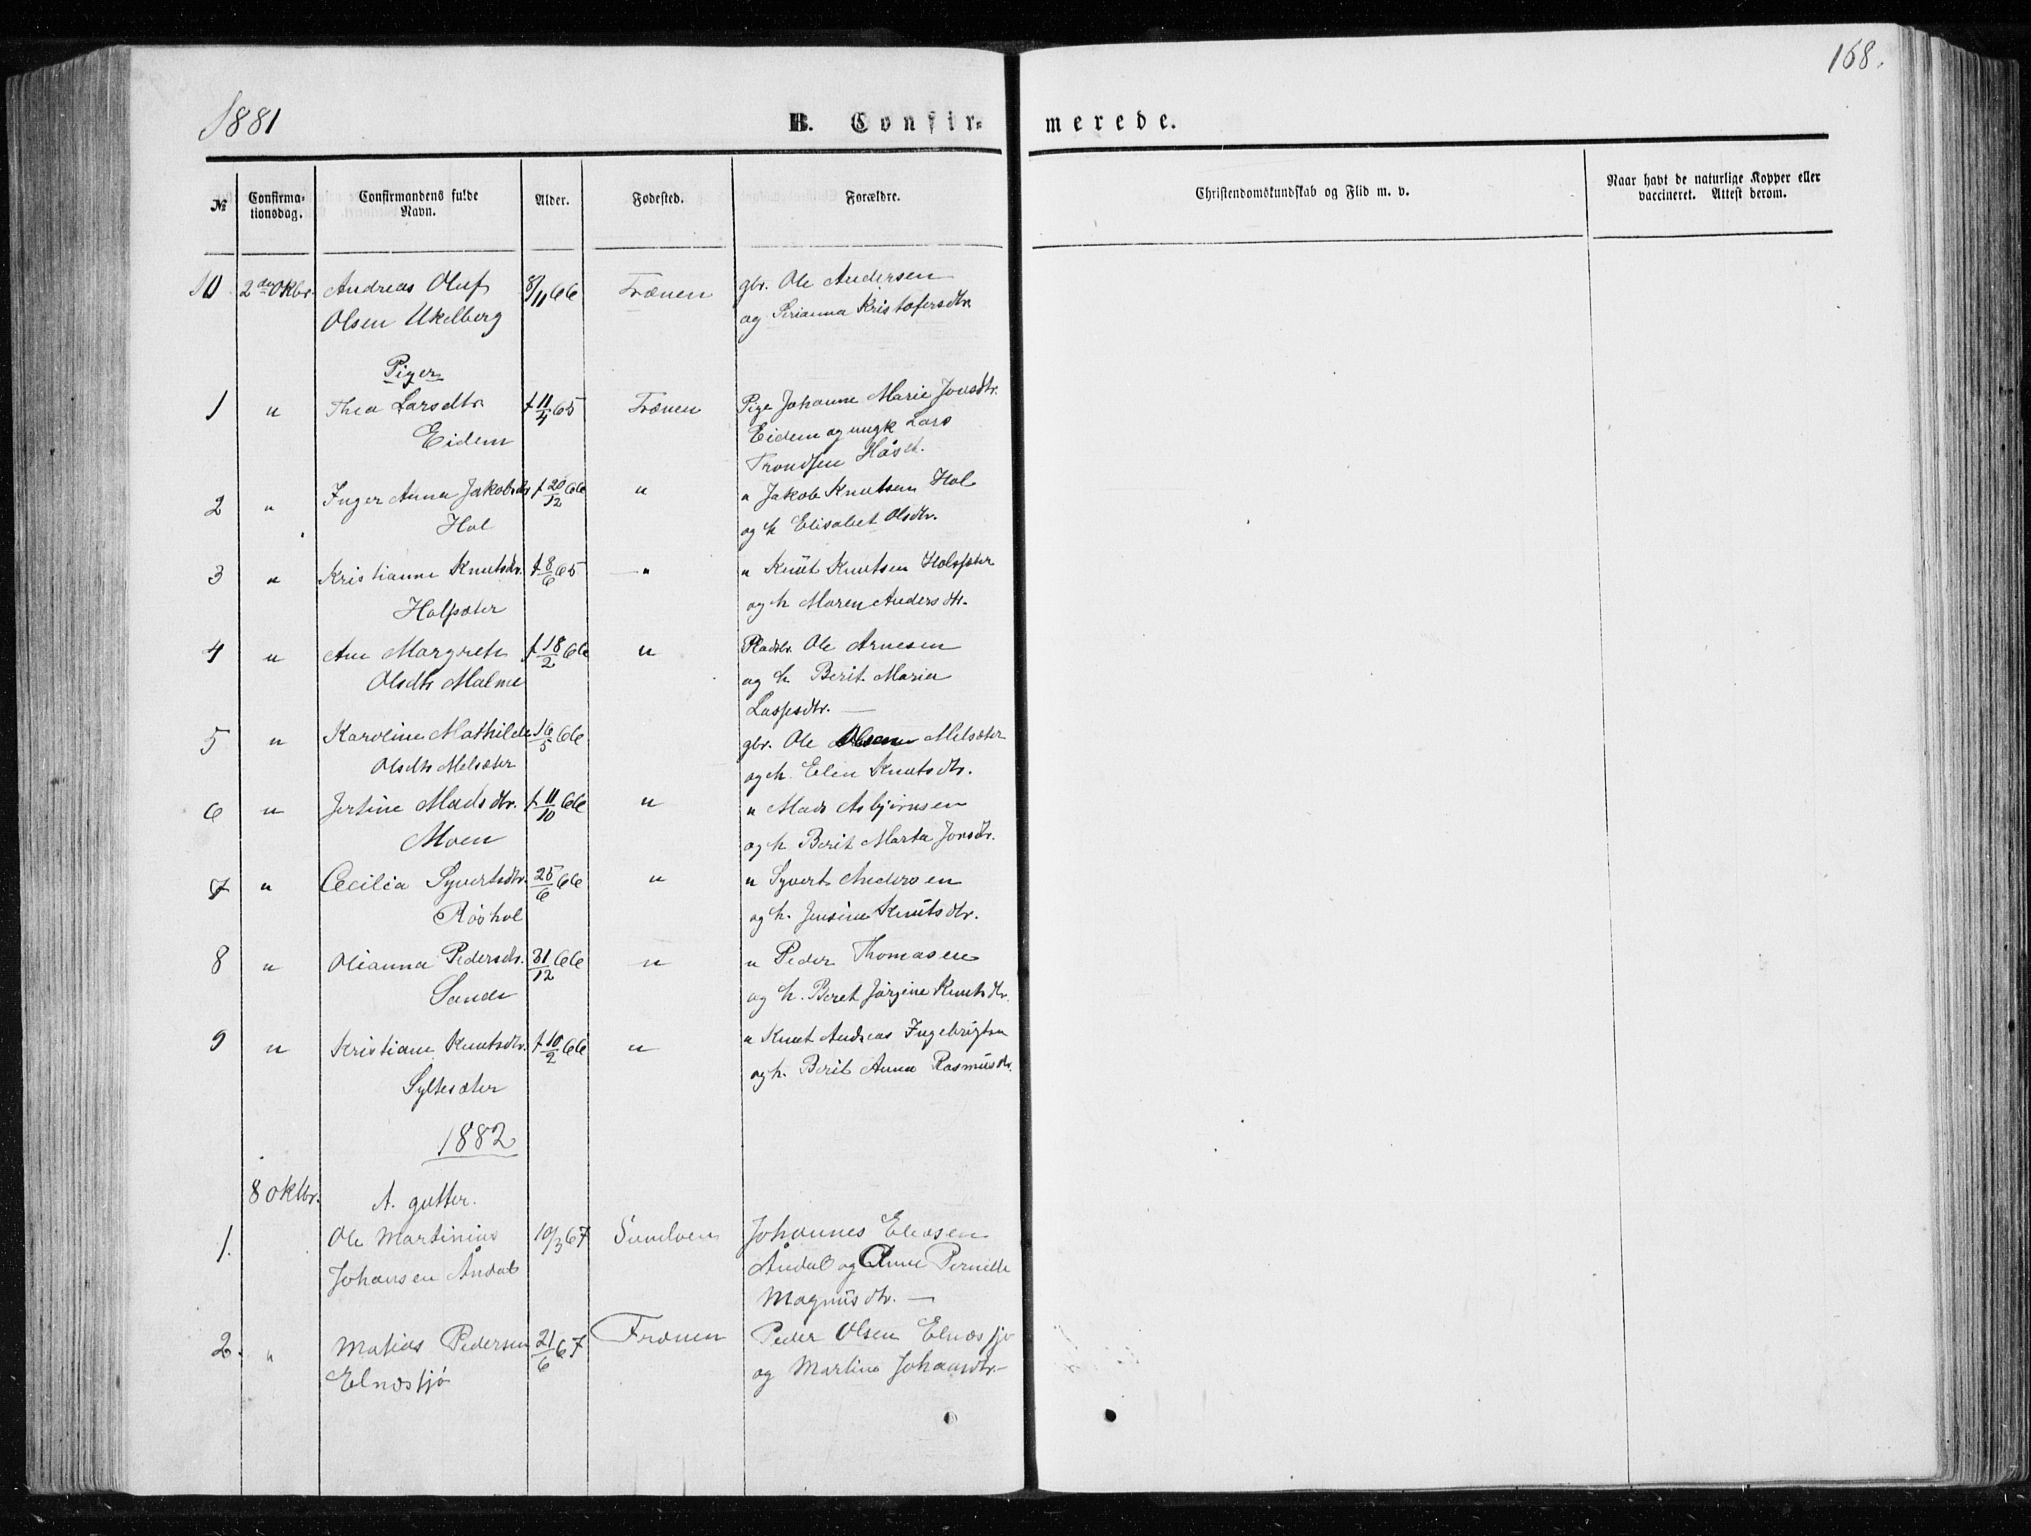 168.
1881
B. Confir-
merede.
№
Confirma-
tionsdag.
Confirmandens fulde
Navn.
Alder.
Fødested.
Forældre.
Christendomskundskab og Flid m. v.
Naar havt de naturlige Kopper eller
vaccineret. Attest derom.
10 2den Oktbr. Andreas Oluf 8/11 66 Frænen gbr. Ole Andersen
Olsen Ukelberg og Serianna Kristofersdtr.
Piger
1 " Thea Larsdtr. f 11/4 65 Frænen Pige Johanne Marie Jonsdtr.
Eidem Eidem og ungk Lars
Trondsen Håset.
2 " Inger Anna Jakobsdtr f 20/12 66 " " Jakob Knutsen Hol
Hol og h Elisabet Olsdtr.
3 " Kristianne Knutsdtr. f 8/6 65 — " " Knut Knutsen Holsæter
Holsæter og h Maren Andersdtr.
4 " Ane Margrete f 18/2 66 " Pladsbr. Ole Arnesen
Olsdtr Malme og h. Berit Maria
Lassesdtr. —
5 " Karoline Mathilde 16/5 66 gbr. Ole Olsen Melsæter
Olsdtr Melsæter og h. Elen Knutsdtr.
6 " Jertine Madsdtr. f 11/10 66 " " Mads Asbjørnsen
Moen og h Berit Marta Jonsdtr.
7 " Cecilia Syvertsdtr. 25/6 66 " " Syvert Andersen
Røshol og h. Jensine Knutsdtr.
8 " Olianna Pedersdtr. 31/12 66 " " Peder Thomasen
Sande og h. Beret Jørgine Knutsdtr.
9 " Kristiane Knutsdtr. f 10/2 66 " " Knut Andreas Ingebrigtsen
Syltesæter og h. Berit Anna Rasmusdtr.
1882
8 Oktbr. A. gutter.
1. Ole Martinius 10/3 67 Sundven Johannes Eliasen
Johansen Åndal Åndal og Anne Pernille
Magnusdtr. —
2. " Matias Pedersen 21/6 67 Frænen Peder Olsen Elnessjø
Elnessjø og Martine Johansdtr. —